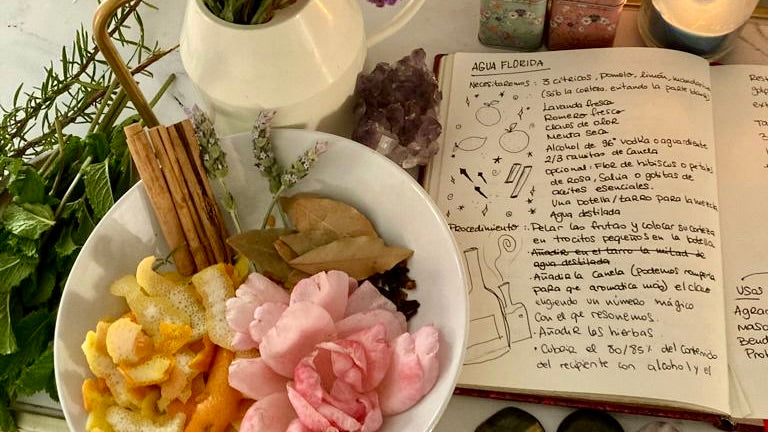 AGUA FLORIDA
Necesitaremos: 3 cítricos, pomelo, limón, mandarina
(Sólo la corteza, evitando la parte blanca)
Lavanda fresca
Romero fresco
clavos de olor
Menta seca
Alcohol de 96° vodka o aguardiente
2/3 ramitas de canela
opcional: Flor de hibiscus o petalos
de Rosa, Salvia o gotitas de
aceites esenciales.
Una botella/tarro para la mezcla
Agua destilada
Procedimiento: Pelar las frutas y colocar su corteza
en trocitos pequeños en la botella
Añadir en el tarro la mitad de
agua destilada
- Añadir la canela (Podemos romperla
para que aromatice más) el clavo
eligiendo un número mágico
con el que resonemos.
- Añadir las hierbas
• Cubrir el 80/85% del contenido
del recipiente con alcohol y el
USOS